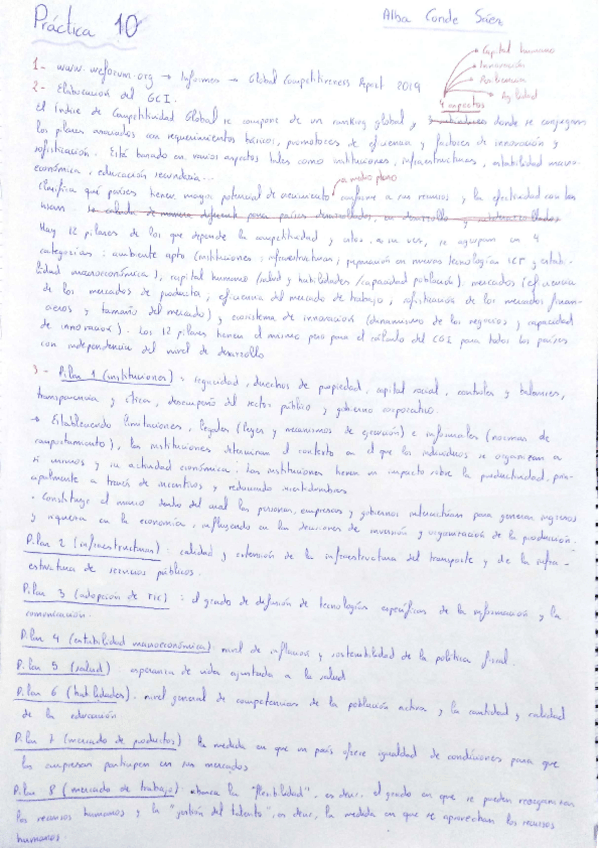 Práctica 10
Alba Conde Sáez
1- www.weforum.org → Informes → Global Competitiveness Report 2019
Capital humano
Innovación
Resiliencia
Agilidad
4 aspectos
2- Elaboración del GCI.
El Índice de Competitividad Global se compone de un ranking global, y donde se conjugan
los pilares asociados con requerimientos básicos, promotores de eficiencia y factores de innovación y
sofisticación. Está basado en varios aspectos tales como instituciones, infraestructuras, estabilidad macro-
económica, educación secundaria...
a medio plazo
Clasifica qué países tienen mayor potencial de crecimiento conforme a sus recursos y la efectividad con los
usan. se calcula de manera diferente para países desarrollados, en desarrollo y subdesarrollados
Hay 12 pilares de los que depende la competitividad y estos, a su vez, se agrupan en 4
categorías: ambiente apto (instituciones, infraestructuras, preparación en nuevas tecnologías ICT y estabi-
lidad macroeconómica), capital humano (salud y habilidades/capacidad población), mercados (eficiencia
de los mercados de producto, eficiencia del mercado de trabajo, sofisticación de los mercados finan-
cieros y tamaño del mercado) y ecosistema de innovación (dinamismo de los negocios y capacidad
de innovación). Los 12 pilares tienen el mismo peso para el cálculo del CGI para todos los países
con independencia del nivel de desarrollo
3- Pilar 1 (instituciones): seguridad, derechos de propiedad, capital social, controles y balances,
transparencia y ética, desempeño del sector público y gobierno corporativo.
→ Estableciendo limitaciones, legales (leyes y mecanismos de ejecución) e informales (normas de
comportamiento), las instituciones determinan el contexto en el que los individuos se organizan a
sí mismos y su actividad económica. Las instituciones tienen un impacto sobre la productividad, prin-
cipalmente a través de incentivos y reduciendo incertidumbres
Constituye el marco dentro del cual las personas, empresas y gobiernos interactúan para generar ingresos
y riqueza en la economía, influyendo en las decisiones de inversión y organización de la producción.
Pilar 2 (infraestructuras): calidad y extensión de la infraestructura del transporte y de la infra-
estructura de servicios públicos.
Pilar 3 (adopción de TIC): el grado de difusión de tecnologías específicas de la información y la
comunicación.
Pilar 4 (estabilidad macroeconómica): nivel de inflación y sostenibilidad de la política fiscal.
Pilar 5 (salud): esperanza de vida ajustada a la salud
Pilar 6 (habilidades): nivel general de competencias de la población activa y la cantidad y calidad
de la educación
Pilar 7 (mercado de productos): la medida en que un país ofrece igualdad de condiciones para que
las empresas participen en sus mercados
Pilar 8 (mercado de trabajo): abarca la "flexibilidad", es decir, el grado en que se pueden reorganizar
los recursos humanos y la "gestión del talento", es decir, la medida en que se aprovechan los recursos
humanos.